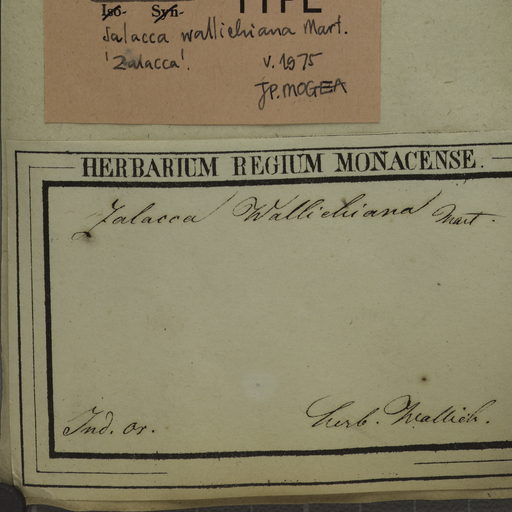 TYPE
Iso- Syn-
Salacca wallichiana Mart.
'Zalacca'. v. 1975
JP. MOGEA
HERBARIUM REGIUM MONACENSE.
Zalacca Wallichiana Mart.
Ind. or. Herb. Wallich.